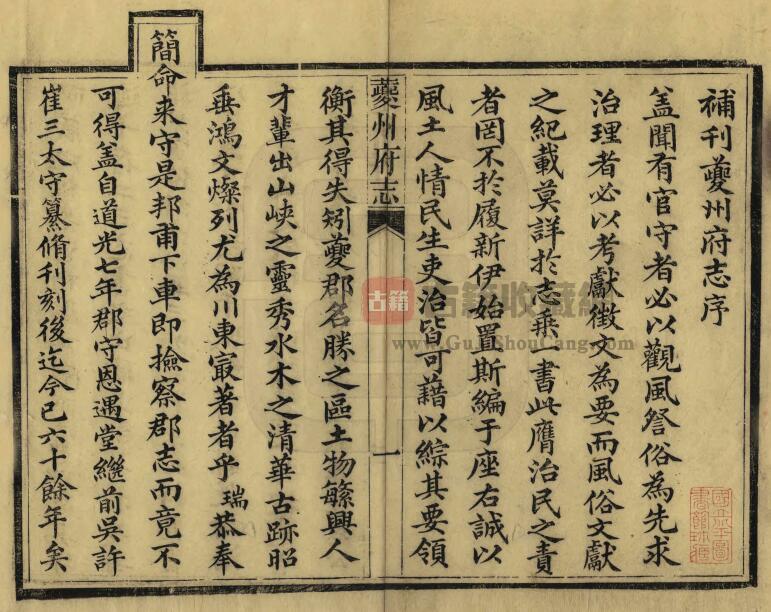 補刊夔州府志序
葢聞有官守者必以觀風詧俗為先求
治理者必以考獻徵文為要而風俗文獻
之紀載莫詳於志乘一書此膺治民之責
者罔不於履新伊始置斯編于座右誠以
風土人情民生吏治皆可藉以綜其要領
夔州府志
一
衡其得失矧夔郡名勝之區土物緐興人
才輩出山峽之靈秀水木之清華古跡昭
垂鴻文燦列尤為川東冣著者乎瑞恭奉
簡命来守是邦甫下車即撿察郡志而竟不
可得葢自道光七年郡守恩遇堂繼前吳許
崔三太守纂脩刊刻後迄今已六十餘年矣
古籍
古籍收藏網
www.GuJiShouCang.com